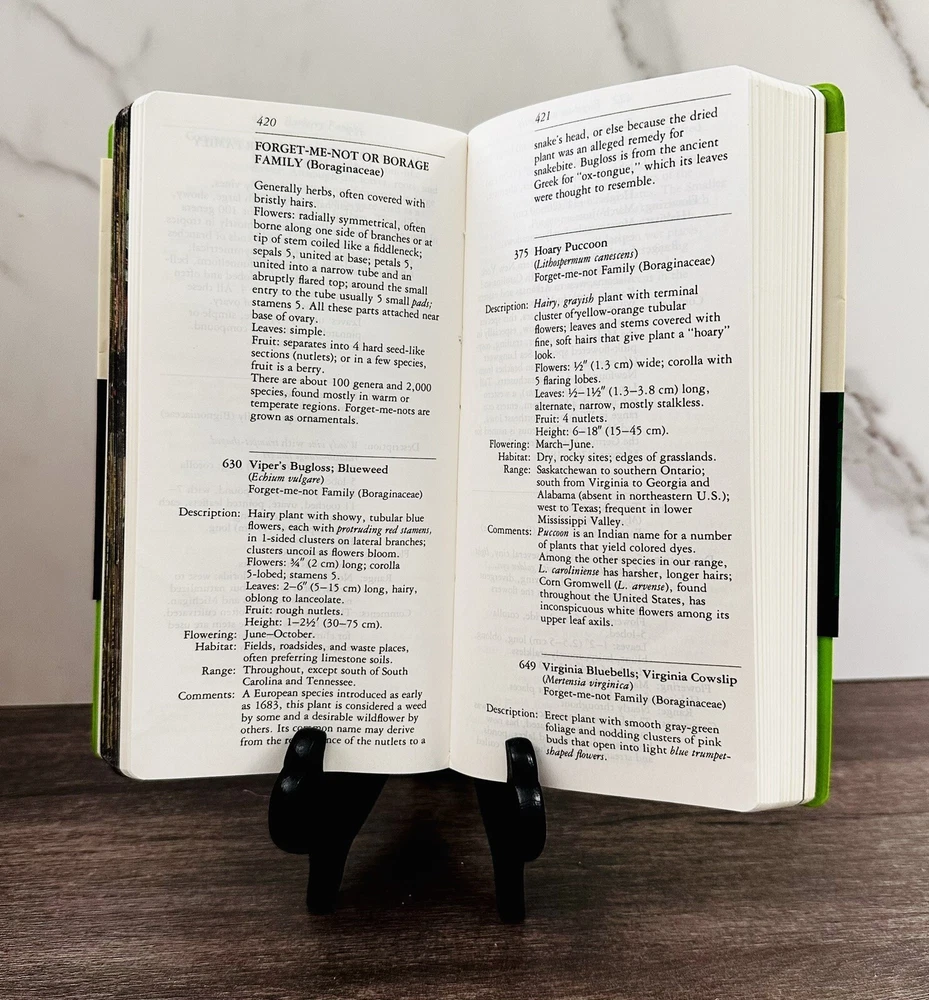 420
FORGET-ME-NOT OR BORAGE
FAMILY (Boraginaceae)
Generally herbs, often covered with
bristly hairs.
Flowers: radially symmetrical, often
borne along one side of branches or at
tip of stem coiled like a fiddleneck;
sepals 5, united at base; petals 5,
united into a narrow tube and an
abruptly flared top; around the small
entry to the tube usually 5 small pads;
stamens 5. All these parts attached near
base of ovary.
Leaves: simple.
Fruit: separates into 4 hard seed-like
sections (nutlets); or in a few species,
fruit is a berry.
There are about 100 genera and 2,000
species, found mostly in warm or
temperate regions. Forget-me-nots are
grown as ornamentals.
630 Viper's Bugloss; Blueweed
(Echium vulgare)
Forget-me-not Family (Boraginaceae)
Description: Hairy plant with showy, tubular blue
flowers, each with protruding red stamens,
in 1-sided clusters on lateral branches;
clusters uncoil as flowers bloom.
Flowers: ¾" (2 cm) long; corolla
5-lobed; stamens 5.
Leaves: 2–6" (5–15 cm) long, hairy,
oblong to lanceolate.
Fruit: rough nutlets.
Height: 1–2½' (30–75 cm).
Flowering: June–October.
Habitat: Fields, roadsides, and waste places,
often preferring limestone soils.
Range: Throughout, except south of South
Carolina and Tennessee.
Comments: A European species introduced as early
as 1683, this plant is considered a weed
by some and a desirable wildflower by
others. Its name may derive
from the of the nutlets to a
421
snake's head, or else because the dried
plant was an alleged remedy for
snakebite. Bugloss is from the ancient
Greek for "ox-tongue," which its leaves
were thought to resemble.
375 Hoary Puccoon
(Lithospermum canescens)
Forget-me-not Family (Boraginaceae)
Description: Hairy, grayish plant with terminal
cluster of yellow-orange tubular
flowers; leaves and stems covered with
fine, soft hairs that give plant a "hoary"
look.
Flowers: ½" (1.3 cm) wide; corolla with
5 flaring lobes.
Leaves: ½–1½" (1.3–3.8 cm) long,
alternate, narrow, mostly stalkless.
Fruit: 4 nutlets.
Height: 6–18" (15–45 cm).
Flowering: March–June.
Habitat: Dry, rocky sites; edges of grasslands.
Range: Saskatchewan to southern Ontario;
south from Virginia to Georgia and
Alabama (absent in northeastern U.S.);
west to Texas; frequent in lower
Mississippi Valley.
Comments: Puccoon is an Indian name for a number
of plants that yield colored dyes.
Among the other species in our range,
L. caroliniense has harsher, longer hairs;
Corn Gromwell (L. arvense), found
throughout the United States, has
inconspicuous white flowers among its
upper leaf axils.
649 Virginia Bluebells; Virginia Cowslip
(Mertensia virginica)
Forget-me-not Family (Boraginaceae)
Description: Erect plant with smooth gray-green
foliage and nodding clusters of pink
buds that open into light blue trumpet-
shaped flowers.